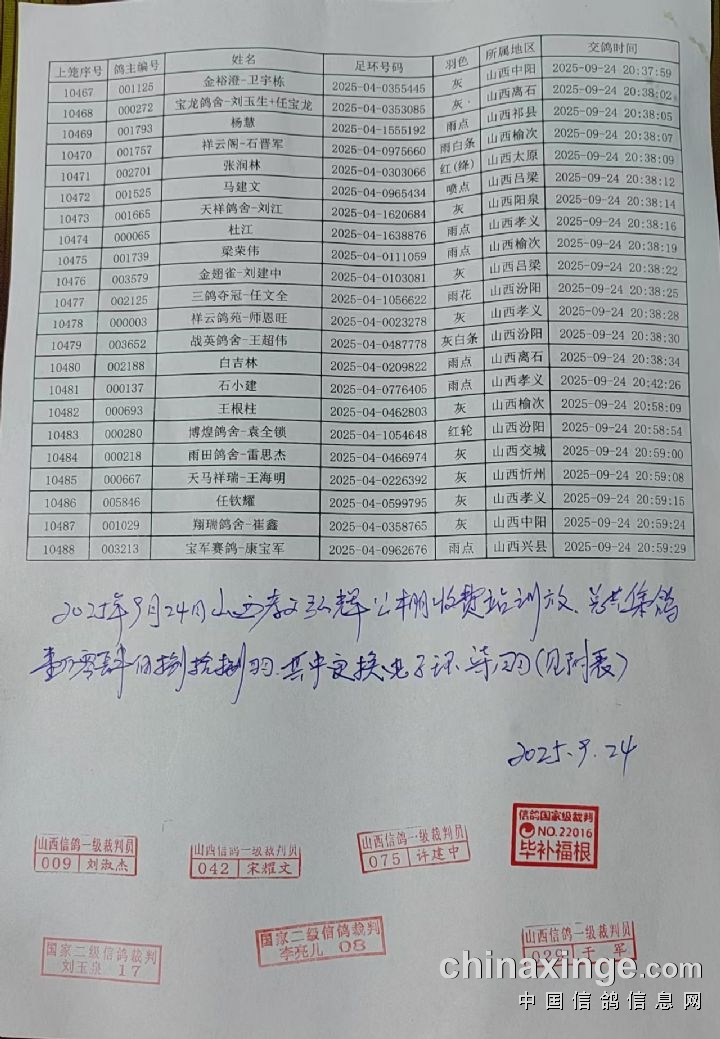 上笼序号 鸽主编号 姓名 足环号码 羽色 所属地区 交鸽时间
10467 001125 金裕澄-卫宇栋 2025-04-0355445 灰 山西中阳 2025-09-24 20:37:59
10468 000272 宝龙鸽舍-刘玉生+任宝龙 2025-04-0353085 灰 山西离石 2025-09-24 20:38:02
10469 001793 杨慧 2025-04-1555192 雨点 山西祁县 2025-09-24 20:38:05
10470 001757 祥云阁-石晋军 2025-04-0975660 雨白条 山西榆次 2025-09-24 20:38:07
10471 002701 张润林 2025-04-0303066 红(绛) 山西太原 2025-09-24 20:38:09
10472 001525 马建文 2025-04-0965434 喷点 山西吕梁 2025-09-24 20:38:12
10473 001665 天祥鸽舍-刘江 2025-04-1620684 灰 山西阳泉 2025-09-24 20:38:14
10474 000065 杜江 2025-04-1638876 雨点 山西孝义 2025-09-24 20:38:16
10475 001739 梁荣伟 2025-04-0111059 雨点 山西榆次 2025-09-24 20:38:19
10476 003579 金翅雀-刘建中 2025-04-0103081 灰 山西吕梁 2025-09-24 20:38:22
10477 002125 三鸽夺冠-任文全 2025-04-1056622 雨花 山西汾阳 2025-09-24 20:38:25
10478 000003 祥云鸽苑-师恩旺 2025-04-0023278 灰 山西孝义 2025-09-24 20:38:28
10479 003652 战英鸽舍-王超伟 2025-04-0487778 灰白条 山西汾阳 2025-09-24 20:38:30
10480 002188 白吉林 2025-04-0209822 雨点 山西离石 2025-09-24 20:38:34
10481 000137 石小建 2025-04-0776405 雨点 山西孝义 2025-09-24 20:42:26
10482 000693 王根柱 2025-04-0462803 灰 山西榆次 2025-09-24 20:58:09
10483 000280 博煌鸽舍-袁全锁 2025-04-1054648 红轮 山西汾阳 2025-09-24 20:58:54
10484 000218 雨田鸽舍-雷思杰 2025-04-0466974 灰 山西交城 2025-09-24 20:59:00
10485 000667 天马祥瑞-王海明 2025-04-0226392 灰 山西忻州 2025-09-24 20:59:08
10486 005846 任钦耀 2025-04-0599795 灰 山西孝义 2025-09-24 20:59:15
10487 001029 翔瑞鸽舍-崔鑫 2025-04-0358765 灰 山西中阳 2025-09-24 20:59:24
10488 003213 宝军赛鸽-康宝军 2025-04-0962676 雨点 山西兴县 2025-09-24 20:59:29
2025年9月24日山西孝义弘辉公棚收费站训放，总共集鸽
壹万零肆佰捌拾捌羽，其中更换电子环 羽(见附表)
2025.9.24
山西信鸽一级裁判员
009 刘淑杰
山西信鸽一级裁判员
042 宋耀文
山西信鸽一级裁判员
075 许建中
信鸽国家级裁判
NO.22016
毕补福根
国家二级信鸽裁判
刘玉泉 17
国家二级信鸽裁判
李亮儿 08
山西信鸽一级裁判员
029 于军
chinaxinge.com
中国信鸽信息网